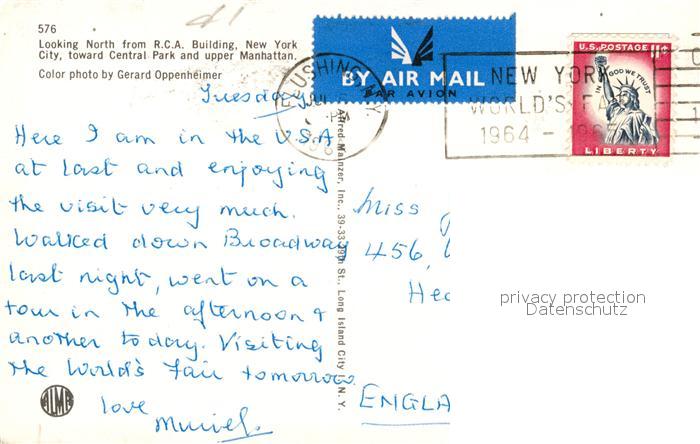 576
Looking North from R.C.A. Building, New York
City, toward Central Park and upper Manhattan.
Color photo by Gerard Oppenheimer
BY AIR MAIL
PAR AVION
FLUSHING
N.Y.
PM
NEW YORK
WORLD'S FA
1964 - 196
U.S. POSTAGE 11¢
IN GOD WE TRUST
LIBERTY
Tuesday
Here I am in the U.S.A
at last and enjoying
the visit very much.
Walked down Broadway
last night, went on a
tour in the afternoon &
another today. Visiting
the World's Fair tomorrow.
love
Muriel.
ALMA
Alfred Mainzer, Inc., 39-33 29th St., Long Island City 1, N.Y.
Miss
456,
Hea
ENGLA
privacy protection
Datenschutz